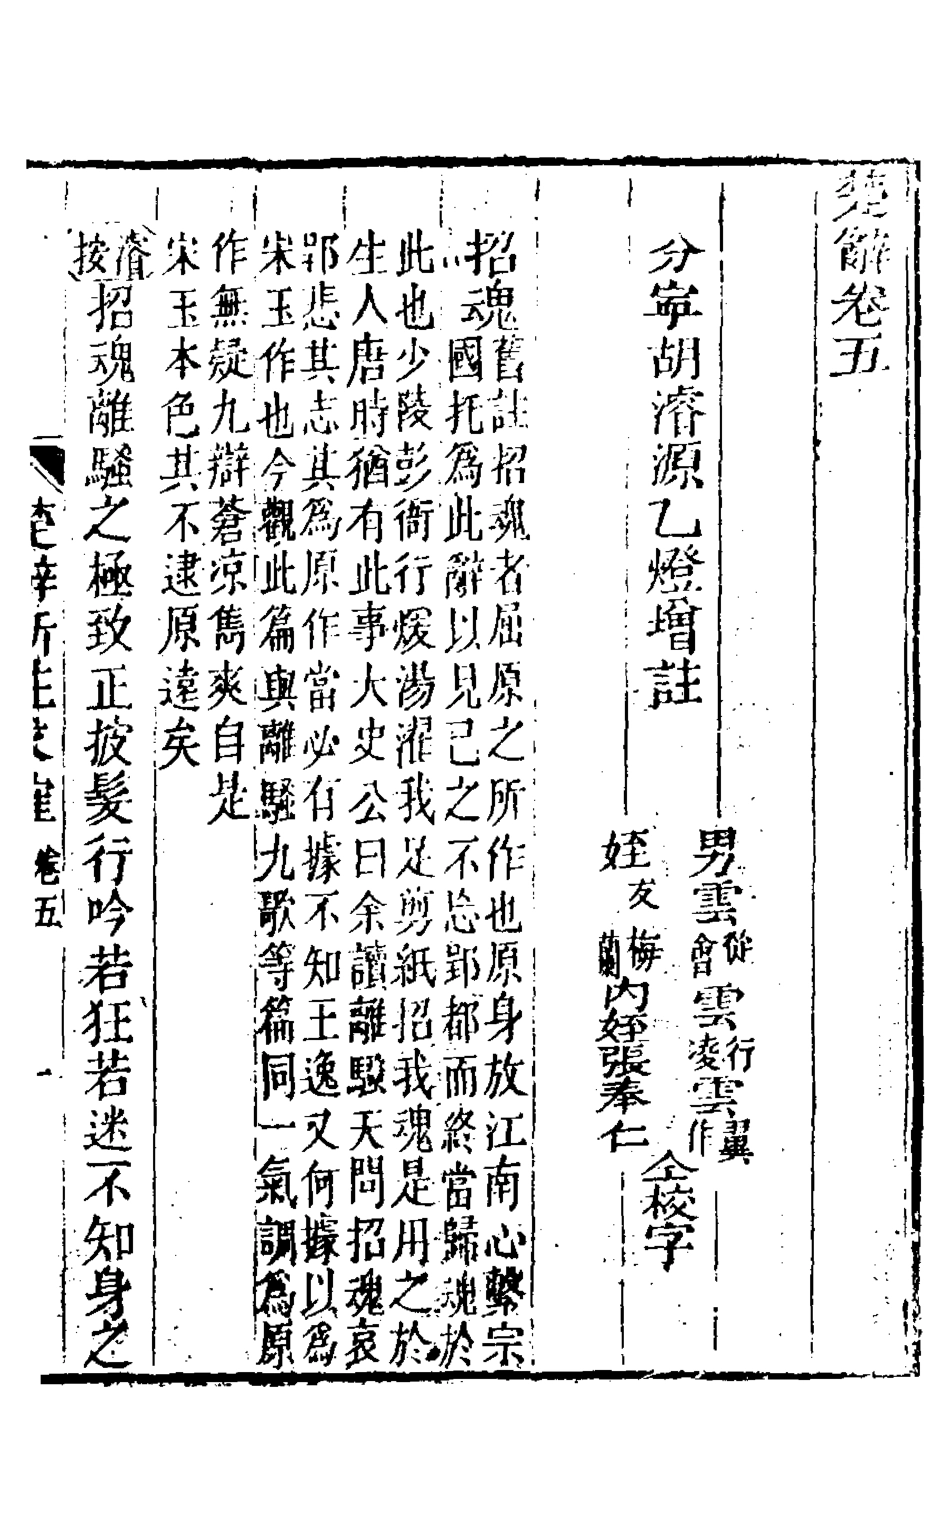 楚辭卷五
分寧胡濬源乙燈增註
男雲從會雲行凌雲翼作
姪友梅蘭內姪張奉仁
仝校字
招魂舊註招魂者屈原之所作也原身放江南心繫宗
國托爲此辭以見己之不忘郢都而終當歸魂於
此也少陵彭衙行煖湯濯我足剪紙招我魂是用之於
生人唐時猶有此事太史公曰余讀離騷天問招魂哀
郢悲其志其爲原作當必有據不知王逸又何據以爲
宋玉作也今觀此篇與離騷九歌等篇同一氣調爲原
作無疑九辯蒼凉雋爽自是
宋玉本色其不逮原遠矣
濬按招魂離騷之極致正披髮行吟若狂若迷不知身之
楚辭新註求確 卷五 一